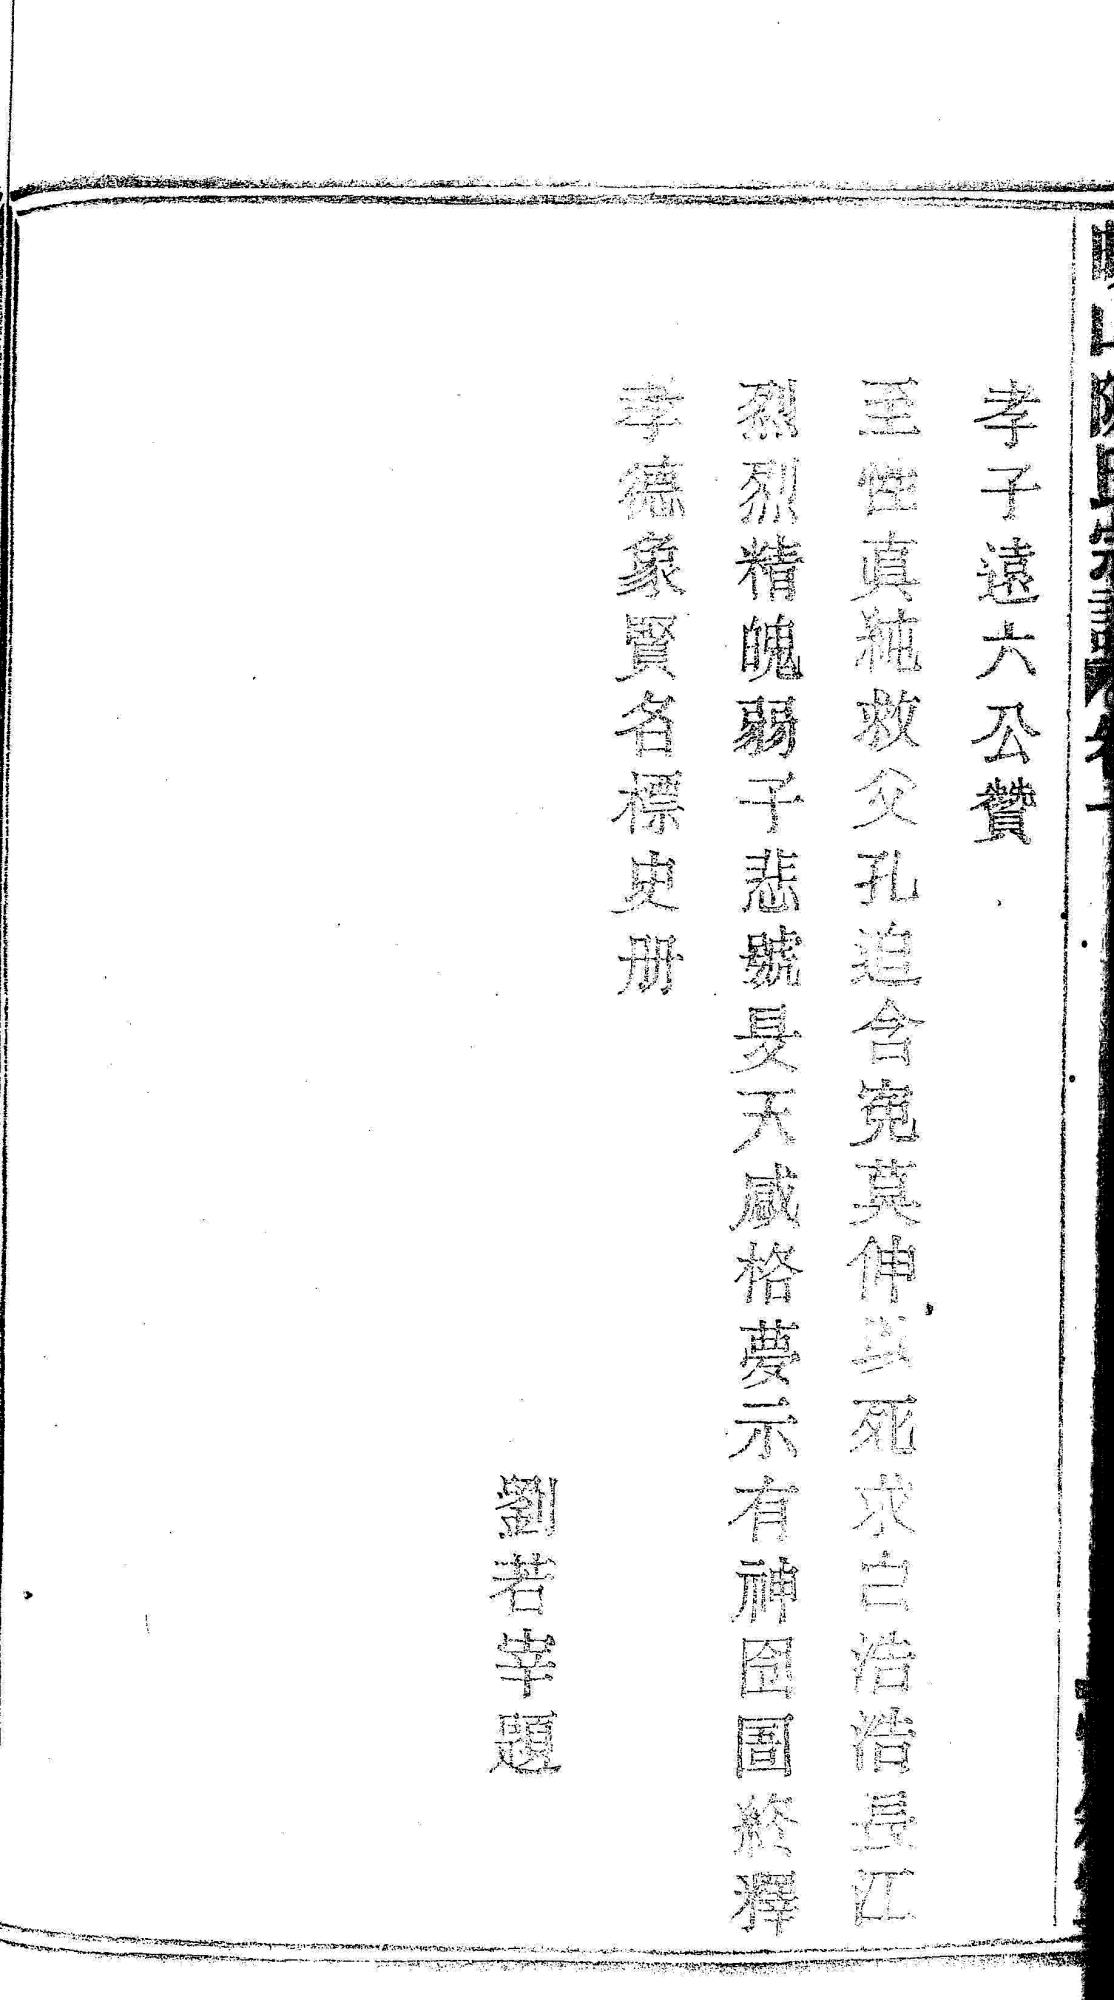 山陳氏宗譜卷
孝子遠六公贊
至性真純救父孔迫含冤莫伸以死求白浩浩長江
烈烈精魄弱子悲號旻天咸格夢示有神囹圄終釋
孝德象賢名標史册
劉若宰題